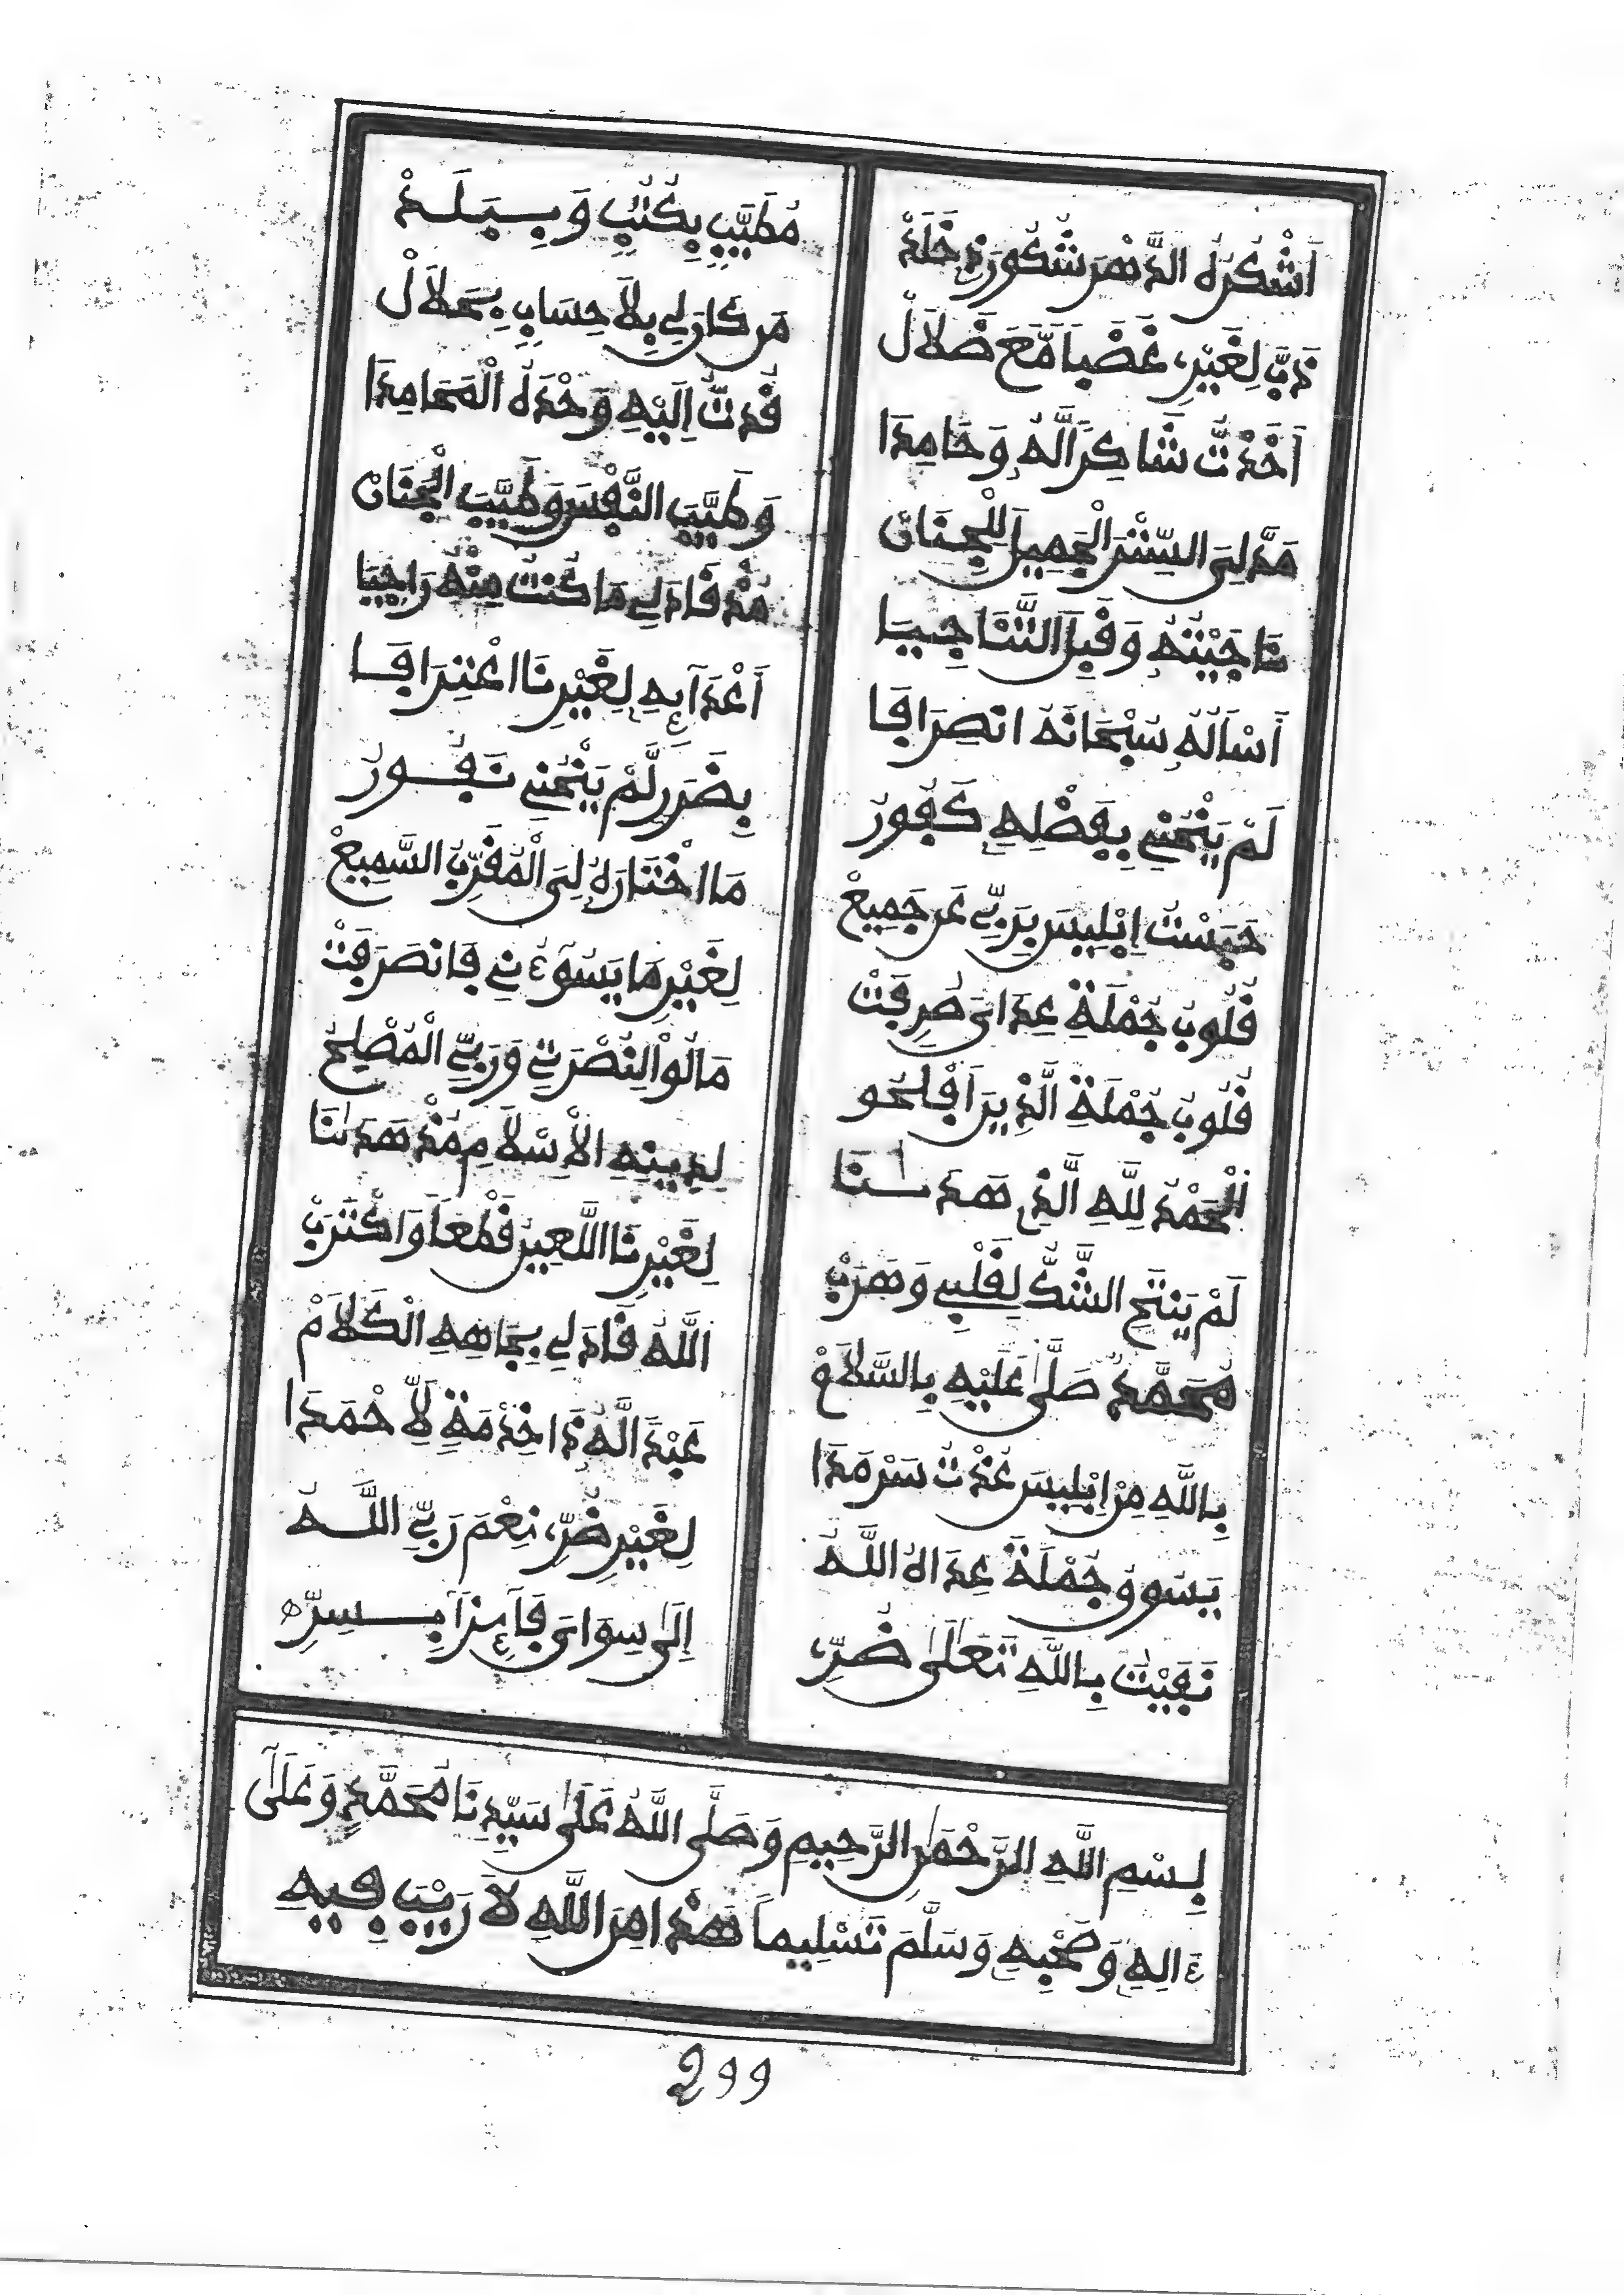 أَشْكُرُهُ الدَّهْرَ شَكُورَ ذِ خَلَدْ مُطَيَّبٍ بِكُتُبٍ وَبِبَلَدْ
ذَبَّ لِغَيْرِ، غَضَباً مَّعَ ضَلَالْ مَن كَانَ لِي بِلَا حِسَابٍ بِحَلَالْ
أَخَذْتُ شَاكِراً لَّهُ وَحَامِدَا قُدتُّ إِلَيْهِ وَحْدَهُ الْمَحَامِدَا
مَدَّ لِيَ السِّتْرَ الْجَمِيلَ لِلْجَنَانْ وَطَيَّبَ النَّفْسَ وَطَيَّبَ الْجَنَانْ
نَاجَيْتُهُ وَقَبْلَ التَّنَاجِيَا مُذْ قَادَ لِي مَا كُنتُ مِنْهُ رَاجِيَا
أَسْأَلُهُ سُبْحَانَهُ انصِرَافَا أَعْدَآئِهِ لِغَيْرِنَا اعْتِرَافَا
لَمْ يَنْحُنِي بِفَضْلِهِ كَفُورُ بِضَرَرٍ لَّمْ يَنْحُنِي نَفُورُ
حَبَسْتُ إِبْلِيسَ بِرَبِّي عَن جَمِيعْ مَا اخْتَارَهُ لِيَ الْمُقَرِّبُ السَّمِيعْ
قُلُوبُ جُمْلَةِ عِدَايَ صُرِفَتْ لِغَيْرِ مَا يَسُوءُنِي فَانصَرَفَتْ
قُلُوبُ جُمْلَةِ الَّذِينَ أَفْلَحُو مَالُواْ لِنُصْرَتِي وَرَبِّي الْمُصْلِحُ
اَلْحَمْدُ لِلَّهِ الَّذِي هَدَىٰنَا لِدِينِهِ الْإِسْلَامِ مُذْ هَدَىٰنَا
لَمْ يَنتَحِ الشَّكُّ لِقَلْبِي وَهَرَبْ لِغَيْرِنَا اللَّعِينُ قَطْعاً وَاكْتَرَبْ
مُحَمَّدٌ صَلَّىٰ عَلَيْهِ بِالسَّلَامْ اللَّهُ قَادَ لِي بِجَاهِهِ الْكَلَامْ
بِاللَّهِ مِنْ إِبْلِيسَ عُذْتُ سَرْمَدَا عَبْدَ الَّهُ ذَا خِدْمَةٍ لِّأَحْمَدَا
يَسُووُ جُمْلَةَ عِدَاهُ اللَّهُ لِغَيْرِ ضُرِّ، نِعْمَ رَبِّي اللَّهُ
نَفَيْتُ بِاللَّهِ تَعَالَىٰ ضُرِّ، إِلَىٰ سِوَايَ فَآئِزاً بِسِرِّهِ
بِسْمِ اللَّهِ الرَّحْمَٰنِ الرَّحِيمِ وَصَلَّى اللَّهُ عَلَىٰ سَيِّدِنَا مُحَمَّدٍ وَعَلَىٰٓ
ءَالِهِ وَصَحْبِهِ وَسَلَّمَ تَسْلِيماً هَٰذَا مِنَ اللَّهِ لَا رَيْبَ فِيهِ
299